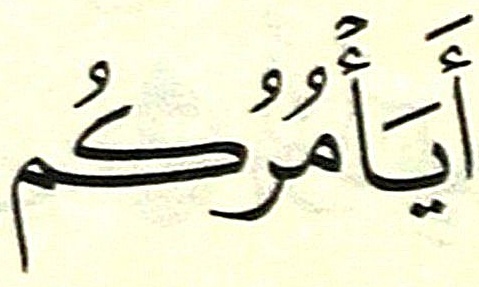 أَيَأْمُرُكُم